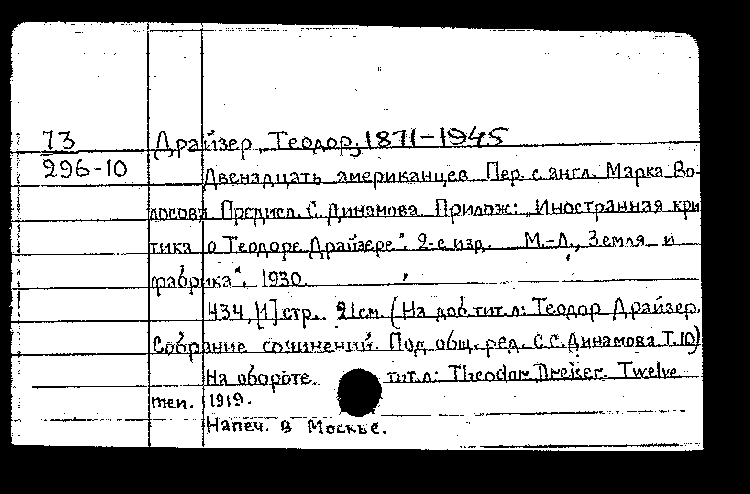 73
296-10
Драйзер, Теодор, 1871-1945
Двенадцать американцев. Пер. с англ. Марка Во-
лосова. Предисл. С. Динамова. Прилож: "Иностранная кри
тика о Теодоре Драйзере". 2-е изд. М.-Л., "Земля и
фабрика", 1930.
434, [1] стр. 21см. (На доб. тит. л: Теодор Драйзер.
Собрание сочинений. Под общ. ред. С.С. Динамова Т.10)
На обороте тит. л: Theodor Dreiser. Twelve
men. 1919.
Напеч. в Москве.